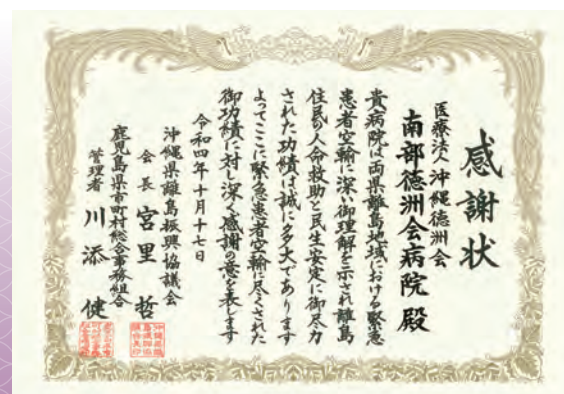 感謝状
医療法人沖縄徳洲会
南部徳洲会病院 殿
貴病院は両県離島地域における緊急
患者空輸に深い御理解を示され離島
住民の人命救助と民生安定に御尽力
された功績は誠に多大であります
よってここに緊急患者空輸に尽くされた
御功績に対し深く感謝の意を表します
令和四年十月十七日
沖縄県離島振興協議会
会長 宮里 哲
鹿児島県市町村総合事務組合
管理者 川添 健